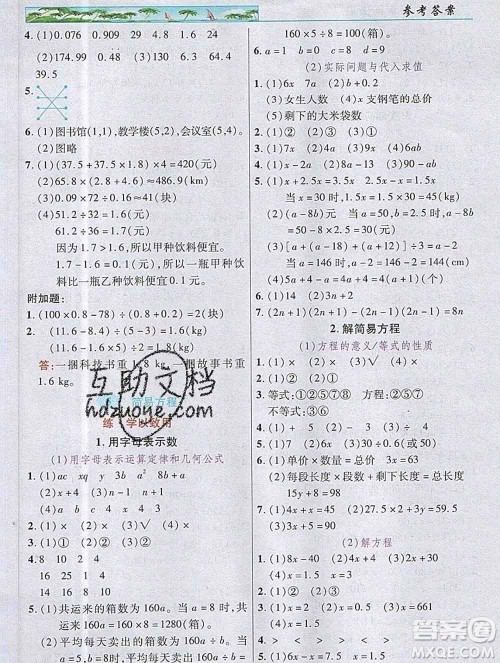 参考答案
4. (1)0.076 0.909 1.43 0.128
(2)174.99 0.48 24.64 34
39.5
5.
6. (1)图书馆(1,1),教学楼(5,2),会议室(5,4)。
(2)图略
7. (1)(37.5+37.5×1.8)×4=420(元)
(2)65.8×(2.8+4.6)≈486.9(千克)
(3)0.09×72÷0.16≈41(块)
(4)51.2÷32=1.6(元)
61.2÷36=1.7(元)
因为1.7>1.6,所以甲种饮料便宜。
1.7-1.6=0.1(元),所以一瓶甲种饮
料比一瓶乙种饮料便宜0.1元。
附加题:
1. (100×0.8-78)÷(0.8+0.2)=2(只)
2. (11.6-8.4)÷
(11.6-1.8×5)÷
答:一捆科技书重1.8 kg,一捆故事书重
1.6 kg。
互助文档
hdzuowe.com
简易方程
练一 学以致用
1.用字母表示数
(1)用字母表示运算定律和几何公式
1. (1)ac xy y² 6a
(2)x+4 a² 9.4x 8b
2. (1)× (2)× (3)√ (4)×
3. (1)① (2)② (3)①
4. 8 10 2 2
16 25 1 4
32 40 8 8
5. (1)共运来的箱数为160a。当a=8时,共
运来160a=160×8=1280(箱)。
(2)平均每天卖出的箱数为160a÷b。当
a=5,b=8时,平均每天卖出160a÷b=
160×5÷8=100(箱)。
6. a=1 b=0 c=8 d=9
(2)实际问题与代入求值
1. (1)6x 7a (2)b+0.2
(3)女生人数 (4)x支钢笔的总价
(5)剩下的大米袋数
2. (1)① (2)② (3)① (4)③
3. (1)× (2)× (3)√ (4)×
4. (1)x-2a (2)8a-13 (3)60-5a
5. (1)x+2.5x=3.5x x=30时,3.5x=
3.5×30=105(kg)
2.5x-x=1.5x
当x=30时,1.5x=1.5×30=45(kg)
(2)(a-8b)元 当a=50,b=5.8时,
a-8b=50-8×5.8=3.6(元)
(3)[a+(a-18)]÷2=(a-9)(下)
当a=146时,a-9=146-9=137(下)
(4)5a+4-a=4a+4=4(a+1)(个)
6. (1)2n (2)(2n+1) (3)(2n-1)(2n+1)
2.解简易方程
(1)方程的意义/等式的性质
1. (1)× (2)√ (3)× (4)×
2. (1)② (2)① (3)③
3. 等式:①②⑤⑦⑧ 方程:②⑤⑦⑧
不等式:③⑥
4. (1)单价×数量=总价 3x=36
(2)每段长度×段数+剩下长度=总长度
15x+0.8=60.8
(3)速度×时间=路程 15x=225
5. (1)x+18=27.5 (2)47-x=21.8
(3)9.4x=28.2 (4)x÷2.95=59
(5)2.4+x=4.1
(2)解方程
1. (1)8x-40 (2)4x-3x (3)x-20
2. (1)③ (2)① (3)② (4)③
3. (1)x=1.5 (2)x=90 (3)x=4.5
(4)x=5
4. > < > > < >